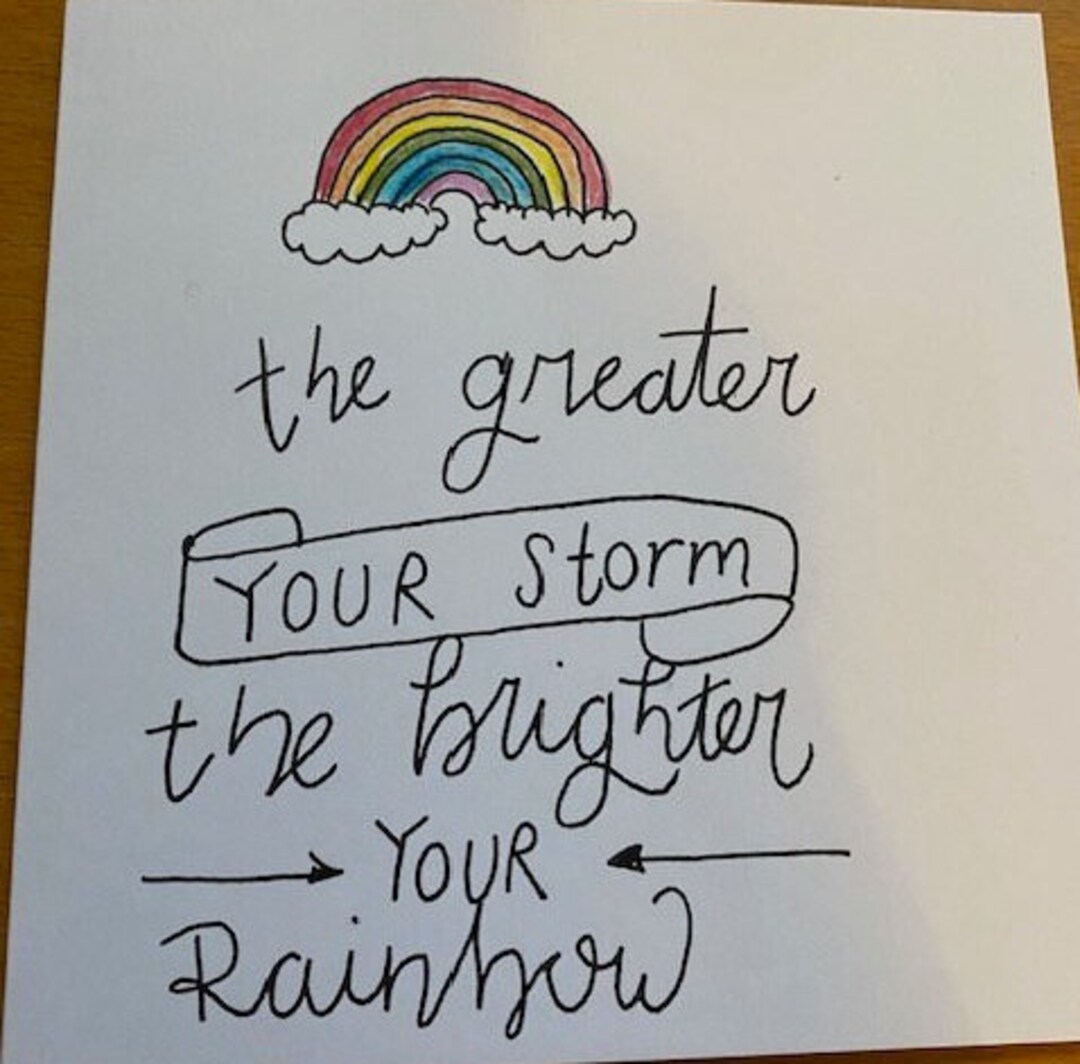 the greater
YOUR Storm
the brighter
YOUR
Rainbow